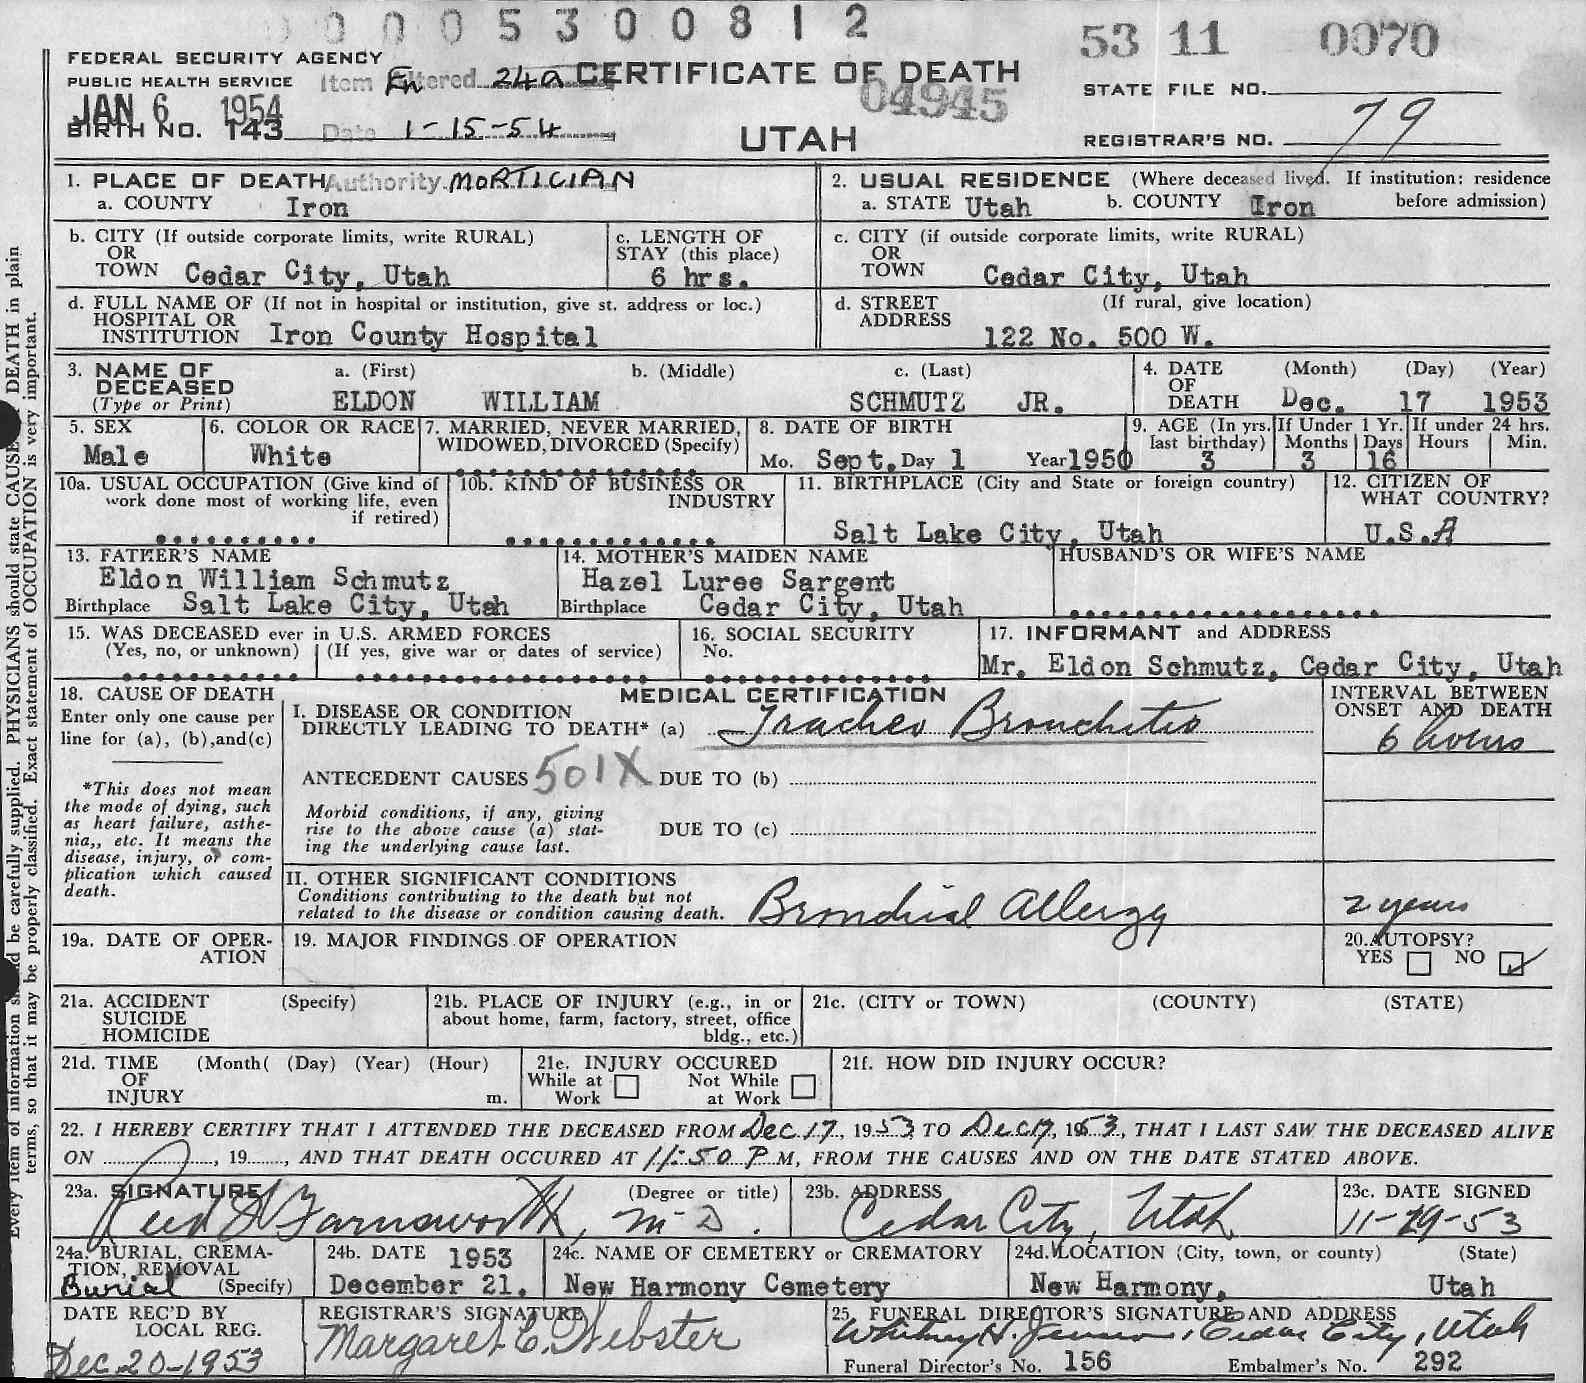 0 0 0 5 3 0 0 8 1 2
53 11 0070
FEDERAL SECURITY AGENCY
PUBLIC HEALTH SERVICE
Item Entered 24a
CERTIFICATE OF DEATH
04945
STATE FILE NO.
JAN 6 1954
BIRTH NO. 143
Date 1-15-54
UTAH
REGISTRAR'S NO. 79
1. PLACE OF DEATH Authority MORTICIAN
a. COUNTY Iron
2. USUAL RESIDENCE (Where deceased lived. If institution: residence
a. STATE Utah b. COUNTY Iron before admission)
b. CITY (If outside corporate limits, write RURAL)
OR
TOWN Cedar City, Utah
c. LENGTH OF
STAY (this place)
6 hrs.
c. CITY (if outside corporate limits, write RURAL)
OR
TOWN Cedar City, Utah
d. FULL NAME OF (If not in hospital or institution, give st. address or loc.)
HOSPITAL OR
INSTITUTION Iron County Hospital
d. STREET (If rural, give location)
ADDRESS
122 No. 500 W.
3. NAME OF
DECEASED
(Type or Print)
a. (First) b. (Middle) c. (Last)
ELDON WILLIAM SCHMUTZ JR.
4. DATE (Month) (Day) (Year)
OF
DEATH Dec. 17 1953
5. SEX
Male
6. COLOR OR RACE
White
7. MARRIED, NEVER MARRIED,
WIDOWED, DIVORCED (Specify)
8. DATE OF BIRTH
Mo. Sept. Day 1 Year 1950
9. AGE (In yrs.
last birthday)
3
If Under 1 Yr.
Months Days
3 16
If under 24 hrs.
Hours Min.
10a. USUAL OCCUPATION (Give kind of
work done most of working life, even
if retired)
10b. KIND OF BUSINESS OR
INDUSTRY
11. BIRTHPLACE (City and State or foreign country)
Salt Lake City, Utah
12. CITIZEN OF
WHAT COUNTRY?
U.S.A
13. FATHER'S NAME
Eldon William Schmutz
Birthplace Salt Lake City, Utah
14. MOTHER'S MAIDEN NAME
Hazel Luree Sargent
Birthplace Cedar City, Utah
HUSBAND'S OR WIFE'S NAME
15. WAS DECEASED ever in U.S. ARMED FORCES
(Yes, no, or unknown) (If yes, give war or dates of service)
16. SOCIAL SECURITY
No.
17. INFORMANT and ADDRESS
Mr. Eldon Schmutz, Cedar City, Utah
18. CAUSE OF DEATH
Enter only one cause per
line for (a), (b), and (c)
*This does not mean
the mode of dying, such
as heart failure, asthe-
nia,, etc. It means the
disease, injury, or com-
plication which caused
death.
MEDICAL CERTIFICATION
I. DISEASE OR CONDITION
DIRECTLY LEADING TO DEATH* (a) Tracheo Bronchitis
INTERVAL BETWEEN
ONSET AND DEATH
6 hours
ANTECEDENT CAUSES 501X DUE TO (b)
Morbid conditions, if any, giving
rise to the above cause (a) stat-
ing the underlying cause last.
DUE TO (c)
II. OTHER SIGNIFICANT CONDITIONS
Conditions contributing to the death but not
related to the disease or condition causing death. Bronchial Allergy
2 years
19a. DATE OF OPER-
ATION
19. MAJOR FINDINGS OF OPERATION
20. AUTOPSY?
YES NO
21a. ACCIDENT (Specify)
SUICIDE
HOMICIDE
21b. PLACE OF INJURY (e.g., in or
about home, farm, factory, street, office
bldg., etc.)
21c. (CITY or TOWN) (COUNTY) (STATE)
21d. TIME (Month( (Day) (Year) (Hour)
OF
INJURY m.
21e. INJURY OCCURED
While at Work Not While at Work
21f. HOW DID INJURY OCCUR?
22. I HEREBY CERTIFY THAT I ATTENDED THE DECEASED FROM Dec 17, 1953 TO Dec 17, 1953, THAT I LAST SAW THE DECEASED ALIVE
ON , 19 , AND THAT DEATH OCCURED AT 11:50 P M, FROM THE CAUSES AND ON THE DATE STATED ABOVE.
23a. SIGNATURE (Degree or title)
Farnsworth, M D.
23b. ADDRESS
Cedar City, Utah
23c. DATE SIGNED
11-29-53
24a. BURIAL, CREMA-
TION, REMOVAL
Burial (Specify)
24b. DATE 1953
December 21.
24c. NAME OF CEMETERY or CREMATORY
New Harmony Cemetery
24d. LOCATION (City, town, or county) (State)
New Harmony, Utah
DATE REC'D BY
LOCAL REG.
Dec 20-1953
REGISTRAR'S SIGNATURE
Margaret C. Webster
25. FUNERAL DIRECTOR'S SIGNATURE AND ADDRESS
Whitney H. Jenson, Cedar City, Utah
Funeral Director's No. 156 Embalmer's No. 292
terms, so that it may be properly classified. Exact statement of OCCUPATION is very important.